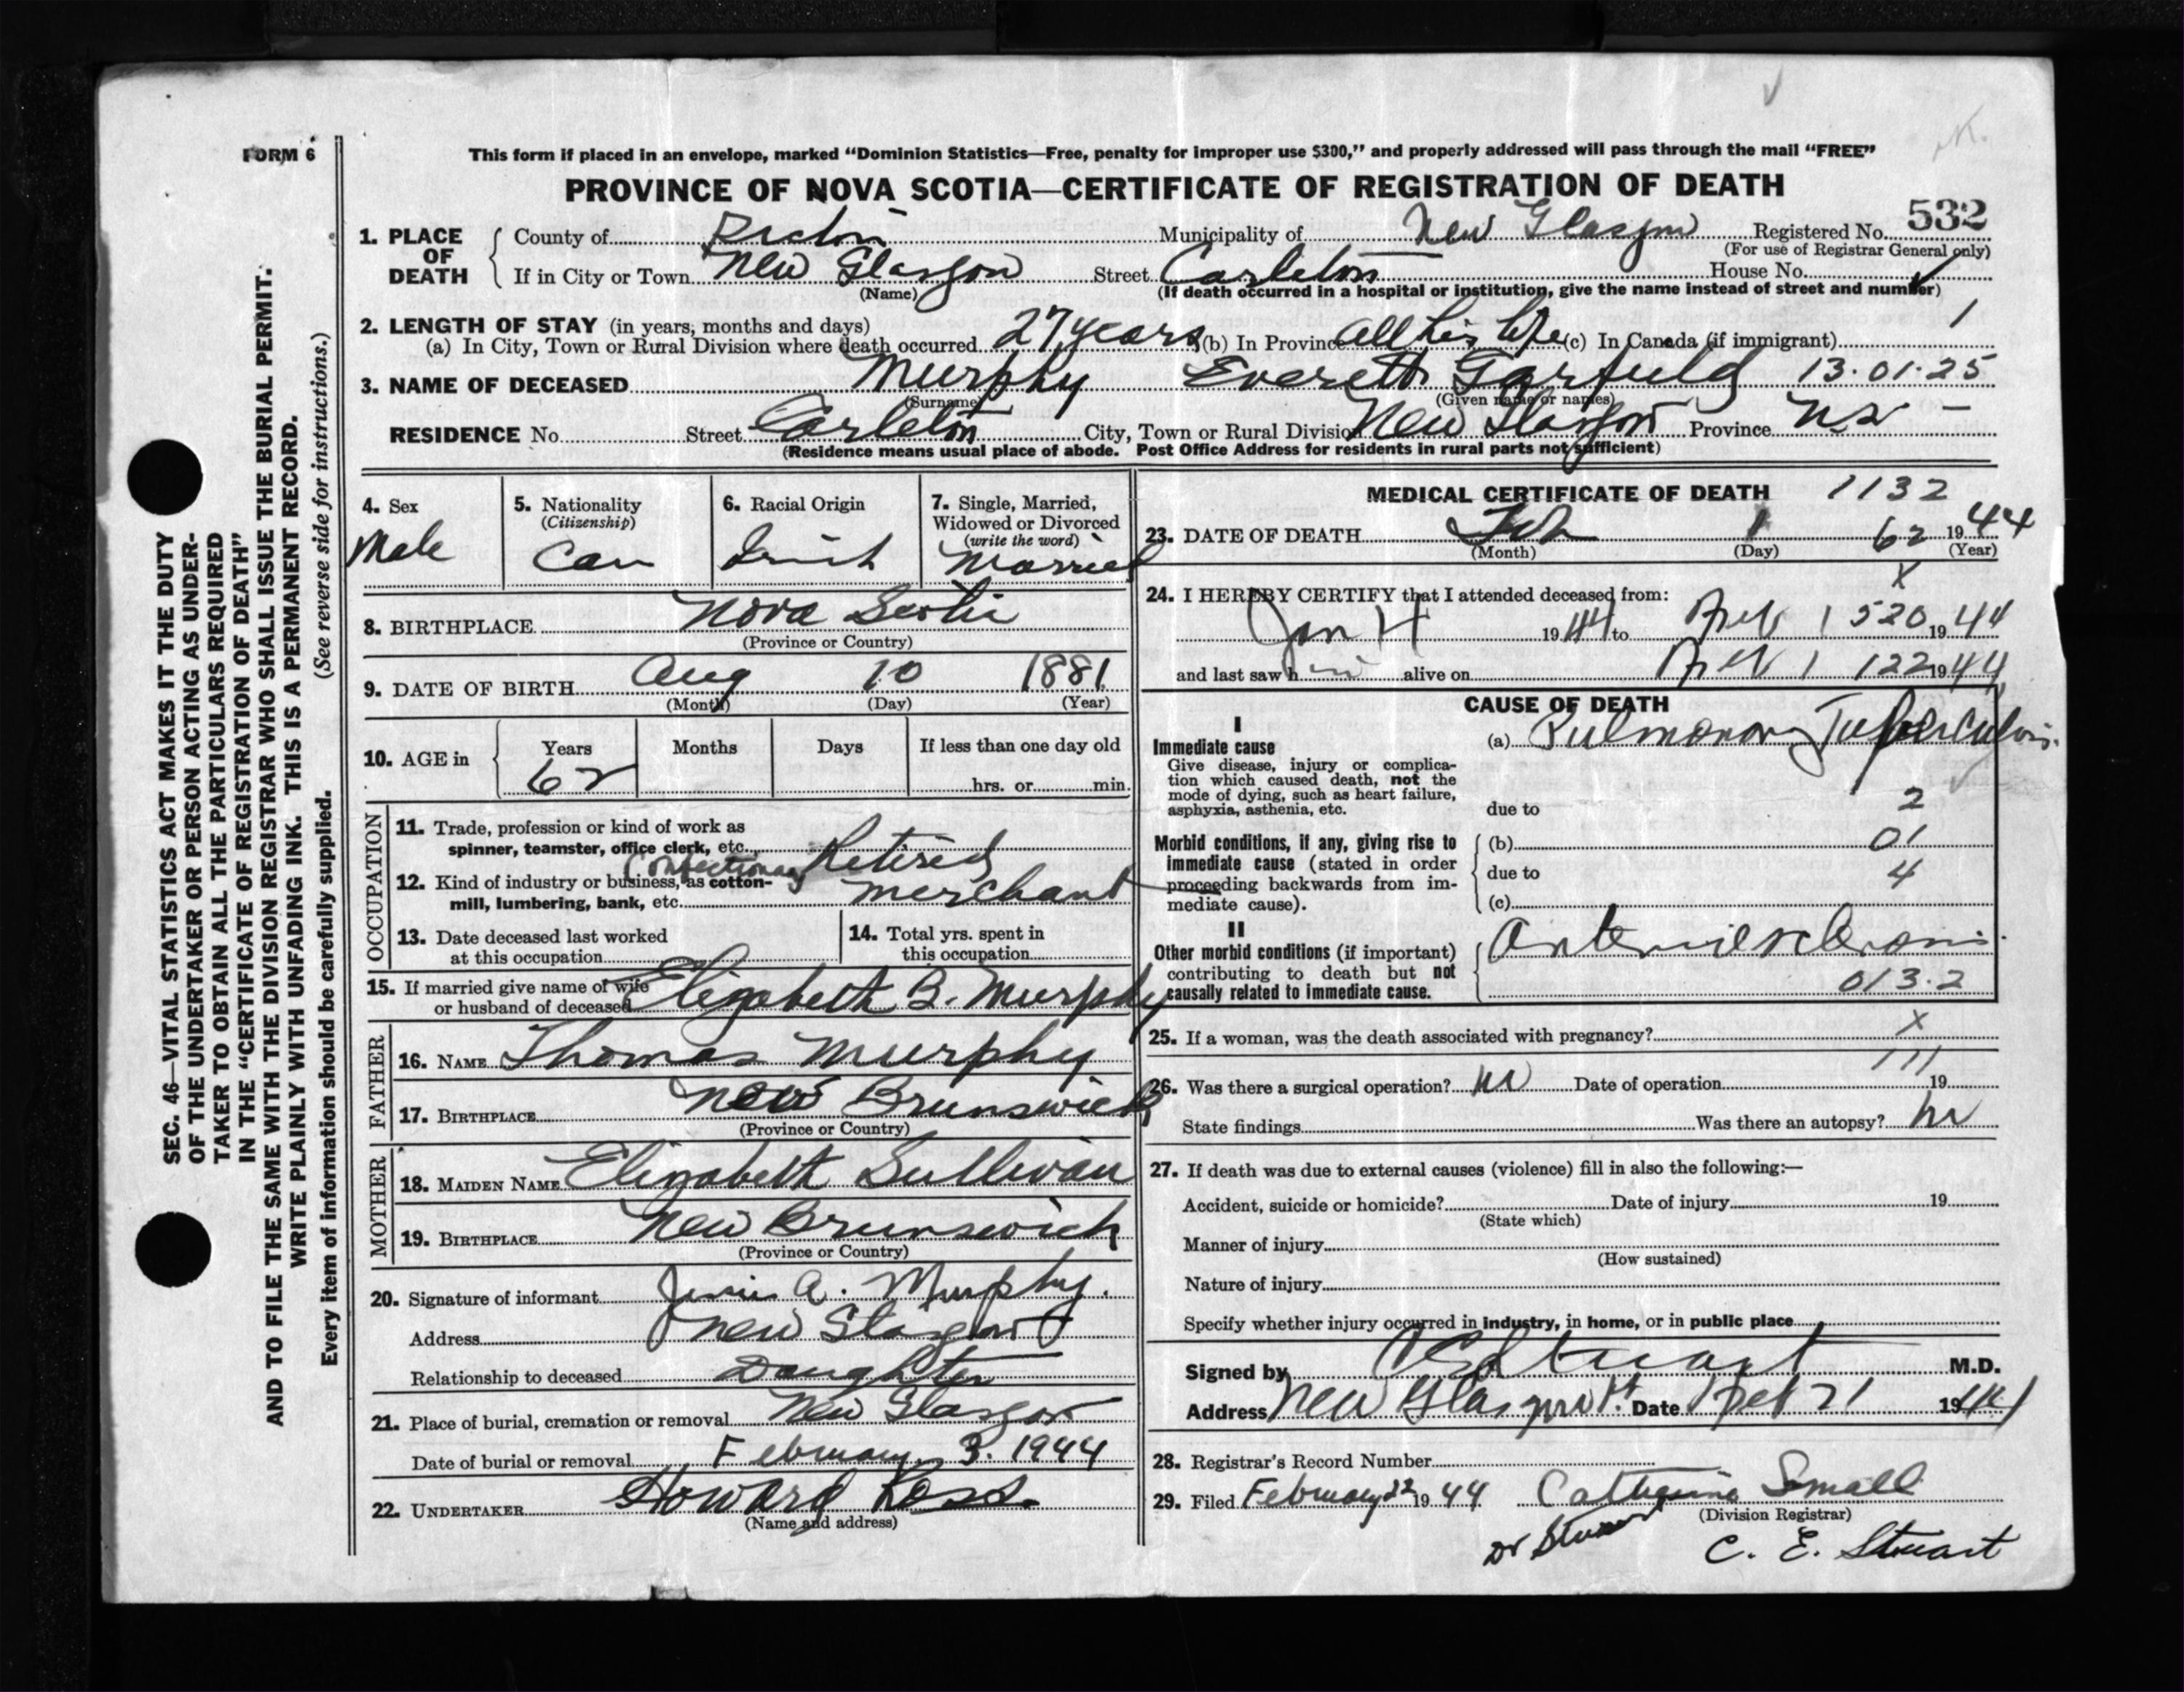 FORM 6
This form if placed in an envelope, marked “Dominion Statistics—Free, penalty for improper use $300,” and properly addressed will pass through the mail “FREE”
PROVINCE OF NOVA SCOTIA—CERTIFICATE OF REGISTRATION OF DEATH
532
1. PLACE OF DEATH { County of Pictou Municipality of New Glasgow Registered No.
(For use of Registrar General only)
If in City or Town New Glasgow Street Carleton House No.
(Name) (If death occurred in a hospital or institution, give the name instead of street and number)
2. LENGTH OF STAY (in years, months and days)
(a) In City, Town or Rural Division where death occurred 27 years (b) In Province all his life (c) In Canada (if immigrant) 1
3. NAME OF DECEASED Murphy Everett Garfield 13.01.25
(Surname) (Given name or names)
RESIDENCE No. Street Carleton City, Town or Rural Division New Glasgow Province NS
(Residence means usual place of abode. Post Office Address for residents in rural parts not sufficient)
4. Sex
Male
5. Nationality
(Citizenship)
Can
6. Racial Origin
Irish
7. Single, Married,
Widowed or Divorced
(write the word)
Married
8. BIRTHPLACE Nova Scotia
(Province or Country)
9. DATE OF BIRTH Aug 10 1881
(Month) (Day) (Year)
10. AGE in { Years Months Days If less than one day old
62 hrs. or min.
OCCUPATION
11. Trade, profession or kind of work as
spinner, teamster, office clerk, etc. Retired
12. Kind of industry or business, as cotton-
mill, lumbering, bank, etc. Confectionary merchant
13. Date deceased last worked
at this occupation
14. Total yrs. spent in
this occupation
15. If married give name of wife
or husband of deceased Elizabeth B. Murphy
FATHER
16. NAME Thomas Murphy
17. BIRTHPLACE New Brunswick
(Province or Country)
MOTHER
18. MAIDEN NAME Elizabeth Sullivan
19. BIRTHPLACE New Brunswick
(Province or Country)
20. Signature of informant A. Murphy.
Address New Glasgow
Relationship to deceased Daughter
21. Place of burial, cremation or removal New Glasgow
Date of burial or removal February 3. 1944
22. UNDERTAKER Howard Ross
(Name and address)
MEDICAL CERTIFICATE OF DEATH 1132
23. DATE OF DEATH Feb 1 62 1944
(Month) (Day) (Year)
X
24. I HEREBY CERTIFY that I attended deceased from:
Jan 4 1944 to Feb 1 520 1944
and last saw him alive on Feb 1 122 1944
CAUSE OF DEATH
I
Immediate cause
Give disease, injury or complica-
tion which caused death, not the
mode of dying, such as heart failure,
asphyxia, asthenia, etc.
(a) Pulmonary Tuberculosis.
due to 2
Morbid conditions, if any, giving rise to
immediate cause (stated in order
proceeding backwards from im-
mediate cause).
(b) 01
due to 4
(c)
II
Other morbid conditions (if important)
contributing to death but not
causally related to immediate cause.
Arteriosclerosis.
013.2
25. If a woman, was the death associated with pregnancy? X
111
26. Was there a surgical operation? no Date of operation 19
State findings Was there an autopsy? no
27. If death was due to external causes (violence) fill in also the following:—
Accident, suicide or homicide? Date of injury 19
(State which)
Manner of injury
(How sustained)
Nature of injury
Specify whether injury occurred in industry, in home, or in public place
Signed by C E Stuart M.D.
Address New Glasgow Date Feb 21 1944
28. Registrar's Record Number
29. Filed February 22 1944 Catherine Small
(Division Registrar)
Dr Stuart C. E. Stuart
SEC. 46—VITAL STATISTICS ACT MAKES IT THE DUTY
OF THE UNDERTAKER OR PERSON ACTING AS UNDER-
TAKER TO OBTAIN ALL THE PARTICULARS REQUIRED
IN THE “CERTIFICATE OF REGISTRATION OF DEATH”
AND TO FILE THE SAME WITH THE DIVISION REGISTRAR WHO SHALL ISSUE THE BURIAL PERMIT.
WRITE PLAINLY WITH UNFADING INK. THIS IS A PERMANENT RECORD.
Every item of information should be carefully supplied. (See reverse side for instructions.)